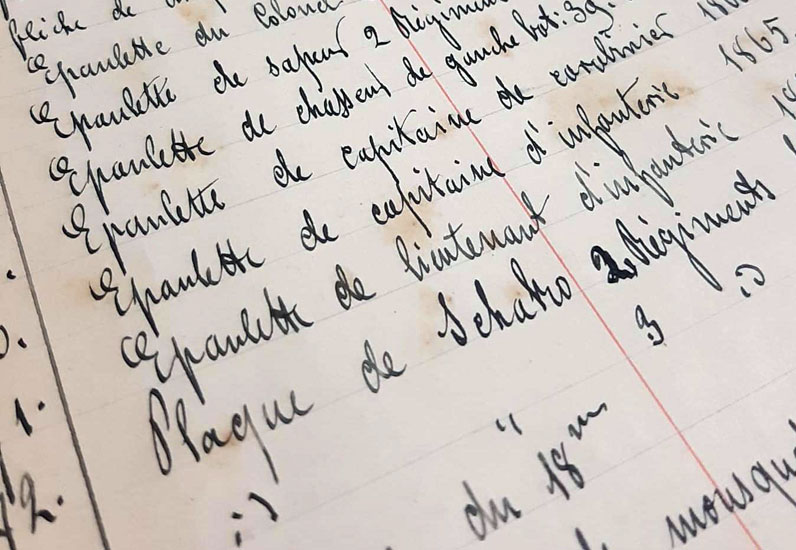 Epaulette du Colonel
Epaulette de sapeur 2 Régiment
Epaulette de chasseur de gauche bat. 39.
Epaulette de capitaine de carabinier
Epaulette de capitaine d'infanterie 1865.
Epaulette de lieutenant d'infanterie
Plaque de Schako 2 Régiments
" " 3 "
1.
2. du 18me